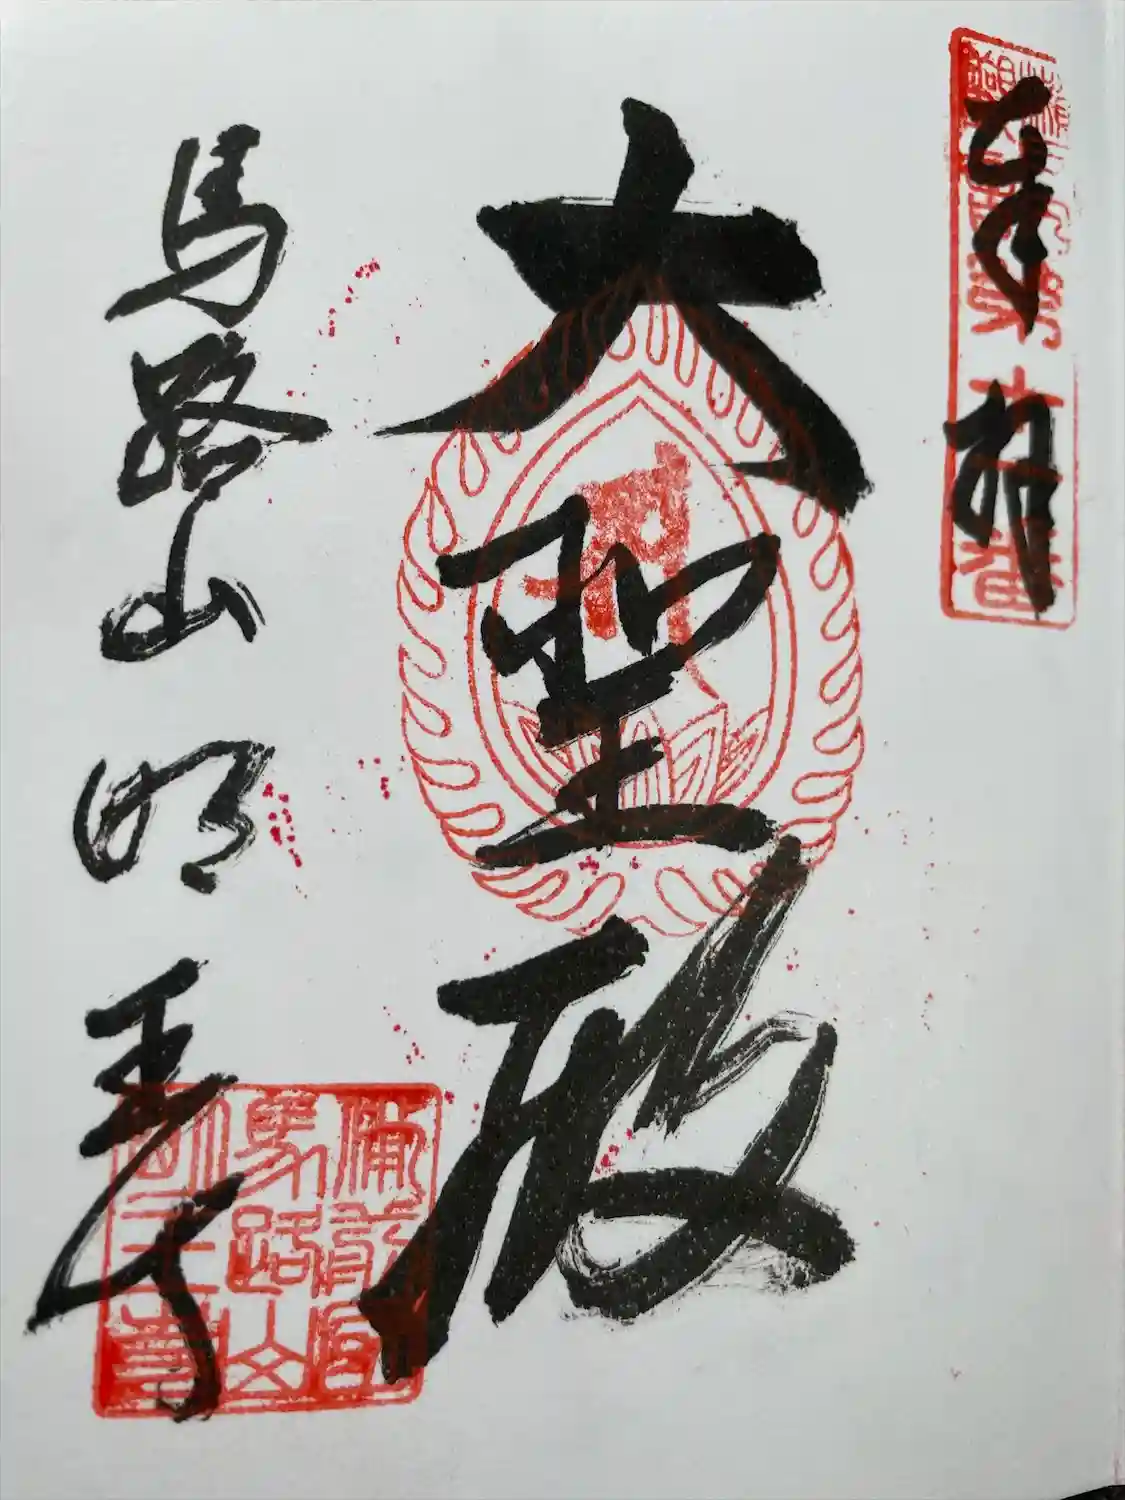 奉拝
大聖殿
馬路山 明王寺
備前國
馬路山
明王寺